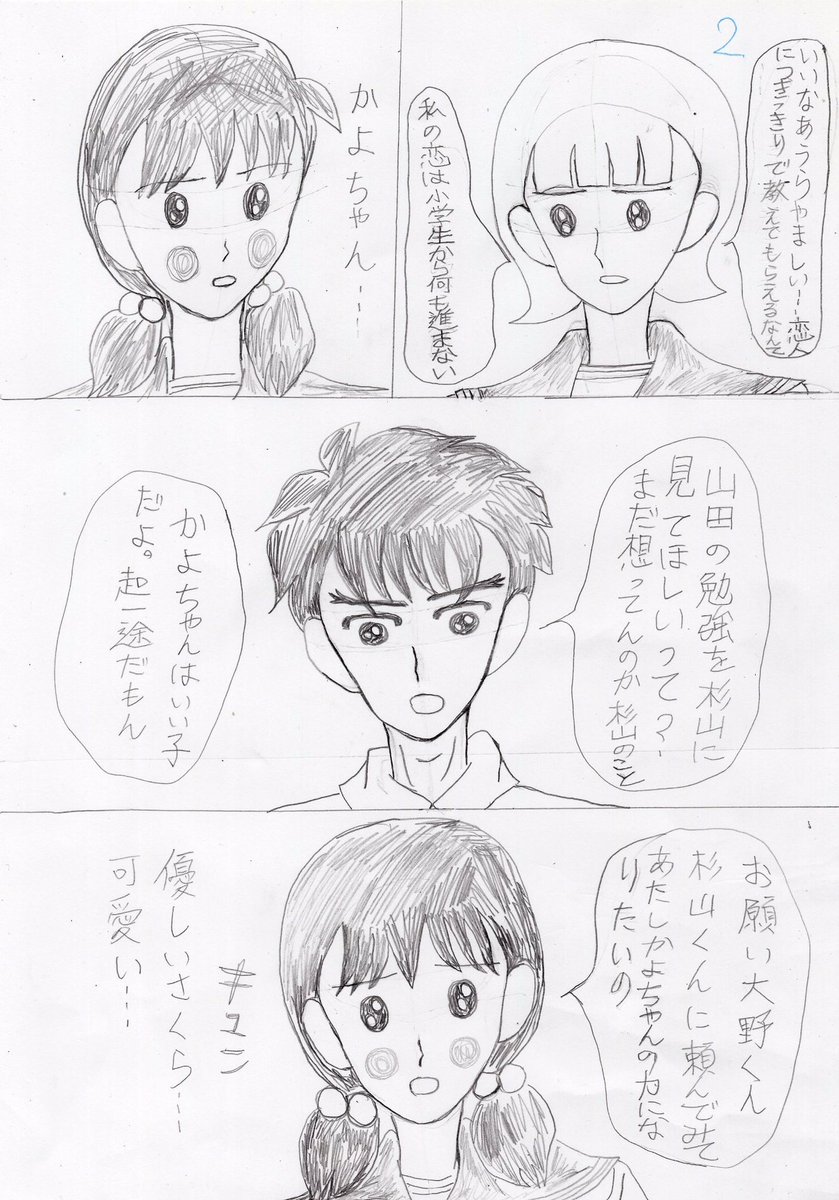 2
いいなあうらやましい…恋人
につきっきりで教えてもらえるなんて
私の恋は小学生から何も進まない
かよちゃん…
山田の勉強を杉山に
見てほしいって?
まだ想ってんのか杉山のこと
かよちゃんはいい子
だよ。超一途だもん
お願い大野くん
杉山くんに頼んでみて
あたしかよちゃんの力にな
りたいの
キュン
優しいさくら…
可愛い…